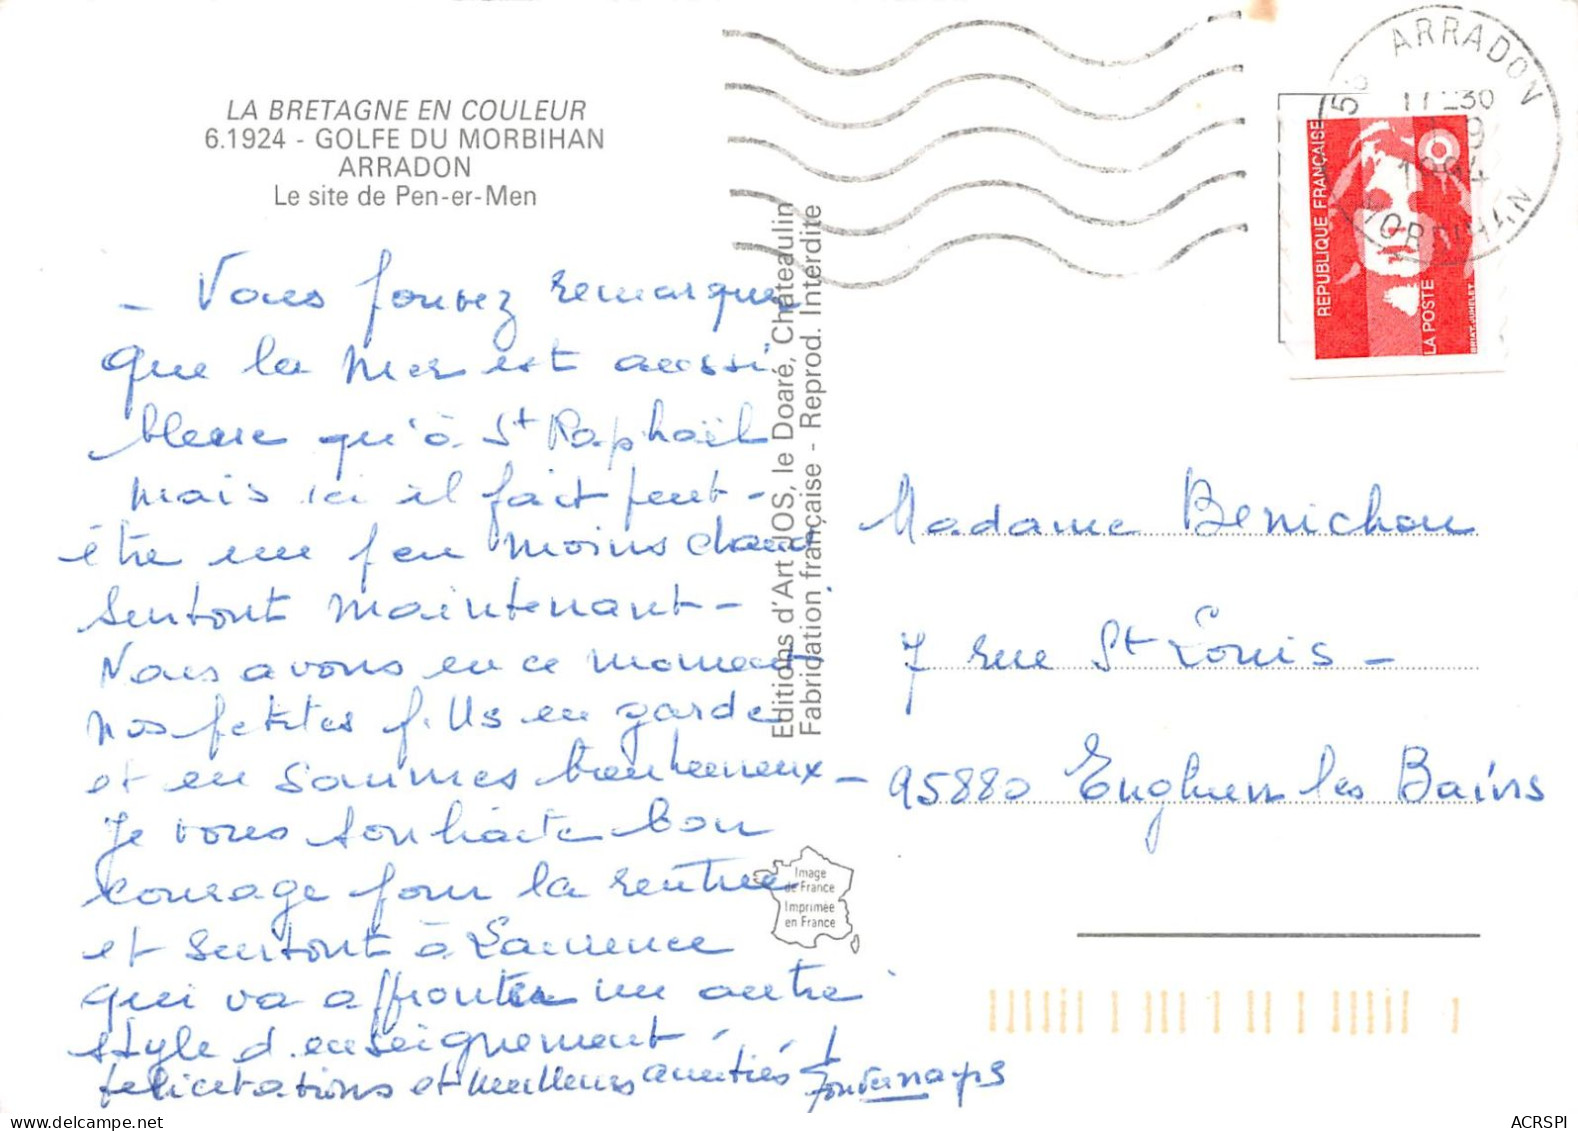 LA BRETAGNE EN COULEUR
6.1924 - GOLFE DU MORBIHAN
ARRADON
Le site de Pen-er-Men
ARRADON
56
17-30
9
1994
MORBIHAN
REPUBLIQUE FRANÇAISE
LA POSTE
BRIAT-JUMELET
- Vous pouvez remarquer
que la mer est aussi
bleue qu'à St Raphaël
mais ici il fait peut-
être un peu moins chaud
surtout maintenant-
Nous avons en ce moment
nos petites filles en garde
et en sommes bienheureux-
Je vous souhaite bon
courage pour la rentrée
et surtout à Laurence
qui va affronter un autre
style d'enseignement -
félicitations et meilleures amitiés
Editions d'Art JOS, le Doaré, Châteaulin
Fabrication française - Reprod. Interdite
Madame Benichou
7 rue St Louis -
95880 Enghien les Bains
Image
de France
Imprimée
en France
ACRSPI